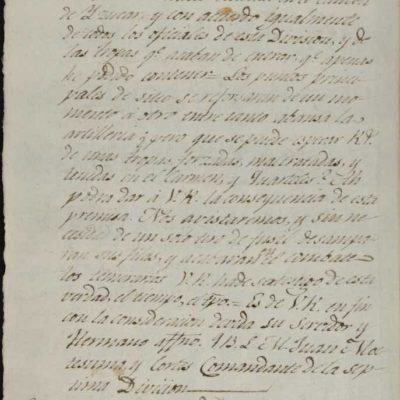 de Yzucar, y con acuerdo igualmente
de todos los oficiales de esta Division, y de
las tropas qe. acaban de entrar, qe. apenas
he podido contener. Los puntos princi-
pales de sitio se reforsaran de un mo-
mento á otro entre tanto abansa la
artilleria; pero que se puede esperar
de unas tropas forzadas, maltratadas, y
en el Carmen, y Quarteles?
podrá dar á V.E. la consequencia de esta
premisa. Nos avistaremos, y sin ne-
cesidad de un solo tiro de fusil desampa-
ran sus filas, y
V.E. ha de ser testigo de esta
verdad. el tiempo, el tpo.= Es de V.E. en fin
con la consideracion devida su Servidor y
Hermano affmo. Q.B.L.M. Juan
y Cortes Comandante de la Sep-
tima Division